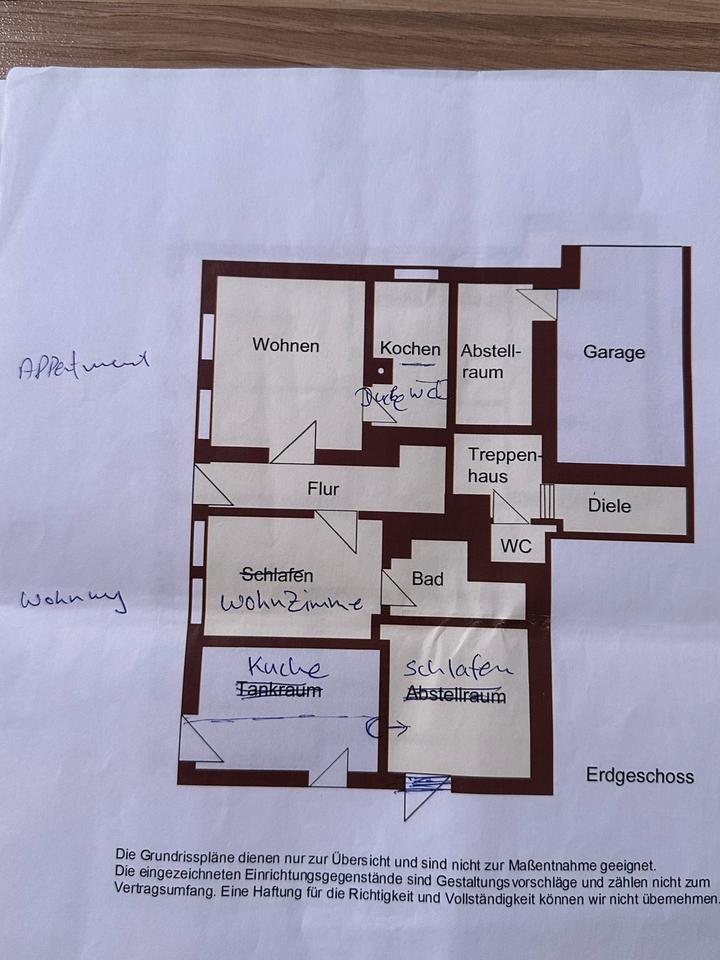 Appartment
Wohnen
Kochen
Abstell-
raum
Garage
Treppen-
haus
Flur
Diele
WC
Schlafen
Wohnzimme
Bad
Wohnung
Kuche
Tankraum
schlafen
Abstellraum
Erdgeschoss
Die Grundrisspläne dienen nur zur Übersicht und sind nicht zur Maßentnahme geeignet.
Die eingezeichneten Einrichtungsgegenstände sind Gestaltungsvorschläge und zählen nicht zum
Vertragsumfang. Eine Haftung für die Richtigkeit und Vollständigkeit können wir nicht übernehmen.